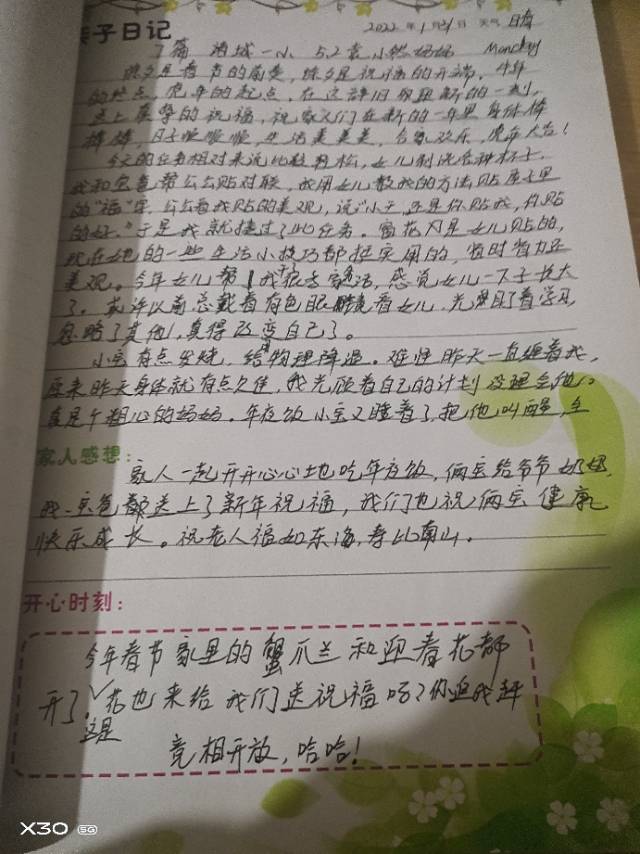 亲子日记 2022年1月31日 天气 晴
7篇 洛城一小 5.2袁小然妈妈 Monday
除夕是春节的前奏，除夕是祝福的开端，牛年
的终点，虎年的起点，在这辞旧迎新的一刻，
送上真挚的祝福，祝家人们在新的一年里身体棒
棒棒，日子顺顺顺，生活美美美，合家欢乐，虎年大吉！
今天的任务相对来说比较轻松，女儿刷洗各种杯子，
我和宝爸帮公公贴对联，我用女儿教我的方法贴屋子里
的“福”字，公公看我贴的美观，说“小于，还是你贴我，你贴
的好。”于是我就接过了此任务。窗花又是女儿贴的，
现在她的一些生活小技巧都挺实用的，省时省力还
美观。今年女儿帮我干很多家务活，感觉女儿一下子长大
了。或许以前总戴着有色眼镜看女儿，光盯着学习，
忽略了其他，真得改变自己了。
小宝有点发烧，给物理降温。难怪昨天一直缠着我，
原来昨天身体就有点欠佳，我光顾着自己的计划没理会他，
真是个粗心的妈妈。年夜饭小宝又睡着了，把他叫醒，全
家人感想：
家人一起开开心心地吃年夜饭，俩宝给爷爷奶奶，
我、宝爸都送上了新年祝福，我们也祝俩宝健康
快乐成长。祝老人福如东海，寿比南山。
开心时刻：
今年春节家里的蟹爪兰和迎春花都
开了，这是花也来给我们送祝福吗？你追我赶
竞相开放，哈哈！
X30 5G